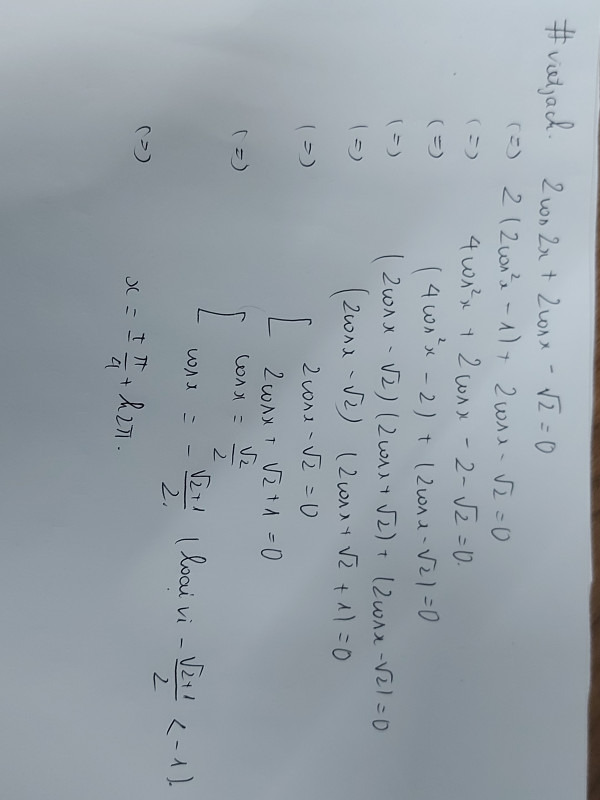 #vietjack.
2cos2x + 2cosx - √2 = 0
(=) 2(2cos²x - 1) + 2cosx - √2 = 0
(=) 4cos²x + 2cosx - 2 - √2 = 0.
(=) (4cos²x - 2) + (2cosx - √2) = 0
(=) (2cosx - √2)(2cosx + √2) + (2cosx - √2) = 0
(=) (2cosx - √2) (2cosx + √2 + 1) = 0
(=) [ 2cosx - √2 = 0
2cosx + √2 + 1 = 0
(=) [ cosx = √2/2
cosx = - (√2+1)/2. (loại vì - (√2+1)/2 < -1).
(=) x = ± π/4 + k2π.